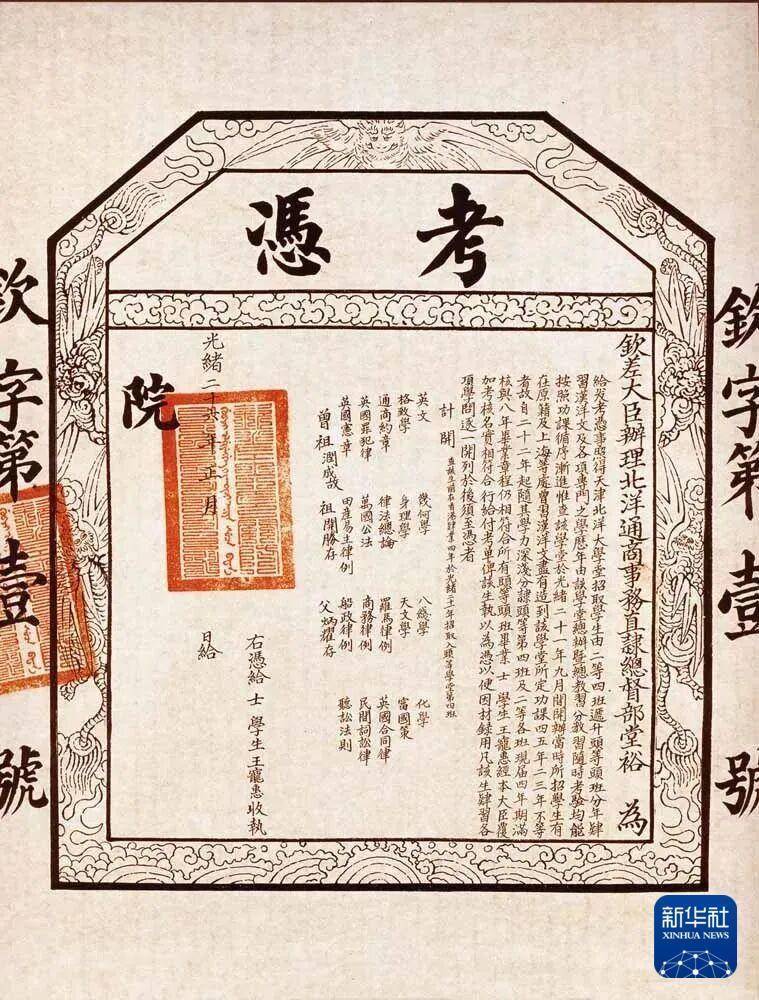 欽字第壹號
考憑
欽差大臣辦理北洋通商事務直隸總督部堂裕 為
給發考憑事照得天津北洋大學堂招取學生由二等四班遞升頭等頭班分年肄
習漢洋文及各項專門之學歷年由該學堂總辦暨總教習分教習隨時考驗均能
按照功課循序漸進惟查該學堂於光緒二十一年九月間開辦當時所招學生有
在原籍及上海等處曾習漢洋文盡有造到該學堂所定功課四五年二三年不等
者故自二十二年起隨其學力深淺分隸頭等第四班及二等各班現屆四年期滿
核與八年畢業章程仍相符合所有頭等頭班畢業士 學生王寵惠經本大臣覆
加考核名實相符合行給付考單俾該生執以為憑以便因材錄用凡該生肄習各
項學問逐一開列於後須至憑者
計開 查該生前在香港肄業四年於光緒二十一年招取入頭等學堂第四班
英文 幾何學 八線學 化學
格致學 身理學 天文學 富國策
通商約章 律法總論 羅馬律例 英國合同律
英國罪犯律 萬國公法 商務律例 民間詞訟律
英國憲章 田產易主律例 船政律例 聽訟法則
曾祖潤成故 祖開勝存 父炳耀存
右憑給 士 學生王寵惠收執
光緒二十六年正月 日給
院
欽字第壹號
新华社
XINHUA NEWS